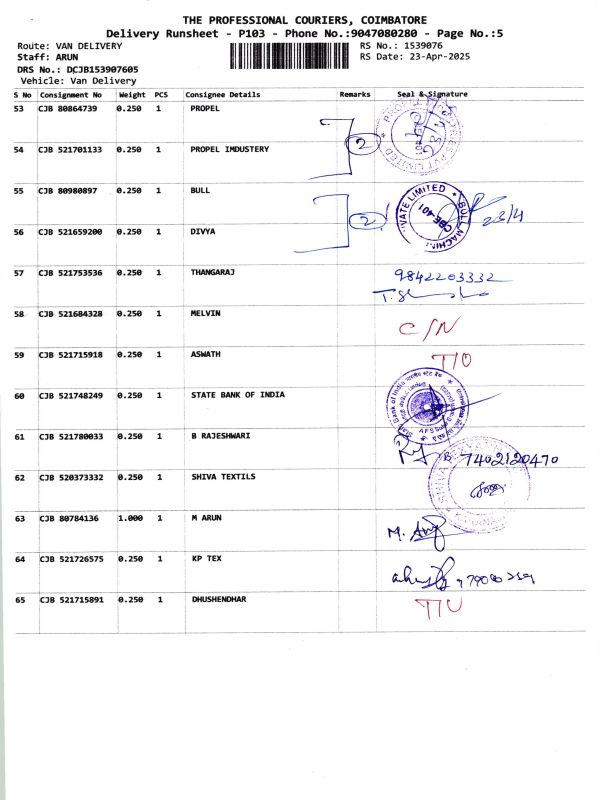 THE PROFESSIONAL COURIERS, COIMBATORE
Delivery Runsheet - P103 - Phone No.:9047080280 - Page No.:5
Route: VAN DELIVERY
RS No.: 1539076
Staff: ARUN
RS Date: 23-Apr-2025
DRS No.: DCJB153907605
Vehicle: Van Delivery
S No Consignment No Weight PCS Consignee Details Remarks Seal & Signature
53 CJB 80864739 0.250 1 PROPEL
54 CJB 521701133 0.250 1 PROPEL IMDUSTERY 2
55 CJB 80980897 0.250 1 BULL
VATE LIMITED * BULL MACHIN
CBE-401
2 23/4
56 CJB 521659200 0.250 1 DIVYA
57 CJB 521753536 0.250 1 THANGARAJ 9842203332
58 CJB 521684328 0.250 1 MELVIN C/N
59 CJB 521715918 0.250 1 ASWATH T/O
60 CJB 521748249 0.250 1 STATE BANK OF INDIA
61 CJB 521780033 0.250 1 B RAJESHWARI 7402120470
62 CJB 520373332 0.250 1 SHIVA TEXTILS
SHIVA
63 CJB 80784136 1.000 1 M ARUN M.
64 CJB 521726575 0.250 1 KP TEX
65 CJB 521715891 0.250 1 DHUSHENDHAR